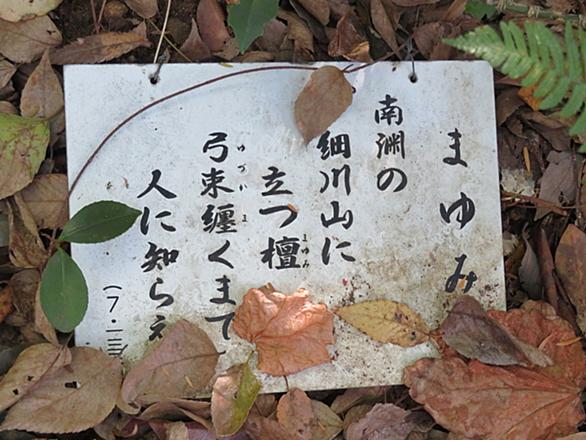 まゆみ
南淵の
細川山に
立つ檀
まゆみ
弓束纏くまで
人に知らえ
(7・一三